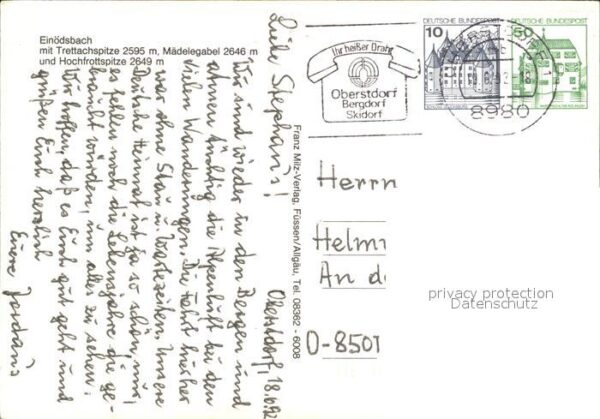 Einödsbach
mit Trettachspitze 2595 m, Mädelegabel 2646 m
und Hochfrottspitze 2649 m
Oberstdorf, 18.6.92
Liebe Stephan's!
Wir sind wieder in den Bergen und
atmen tüchtig die Alpenluft bei den
vielen Wanderungen. Die Fahrt hierher
war ohne Stau u. Wartezeiten. Unsere
Deutsche Heimat ist ja so schön, nur
es fehlen noch die Lebensjahre die ge-
braucht würden, um alles zu sehen.
Wir hoffen, daß es Euch gut geht und
grüßen Euch herzlich
Eure Jordan's
Franz Milz-Verlag, Füssen/Allgäu, Tel. 08362 - 6008
Ihr heißer Draht
Oberstdorf
Bergdorf
Skidorf
10
DEUTSCHE BUNDESPOST
50
DEUTSCHE BUNDESPOST
8980
Herrn
Helm
An de
D-8501
privacy protection
Datenschutz